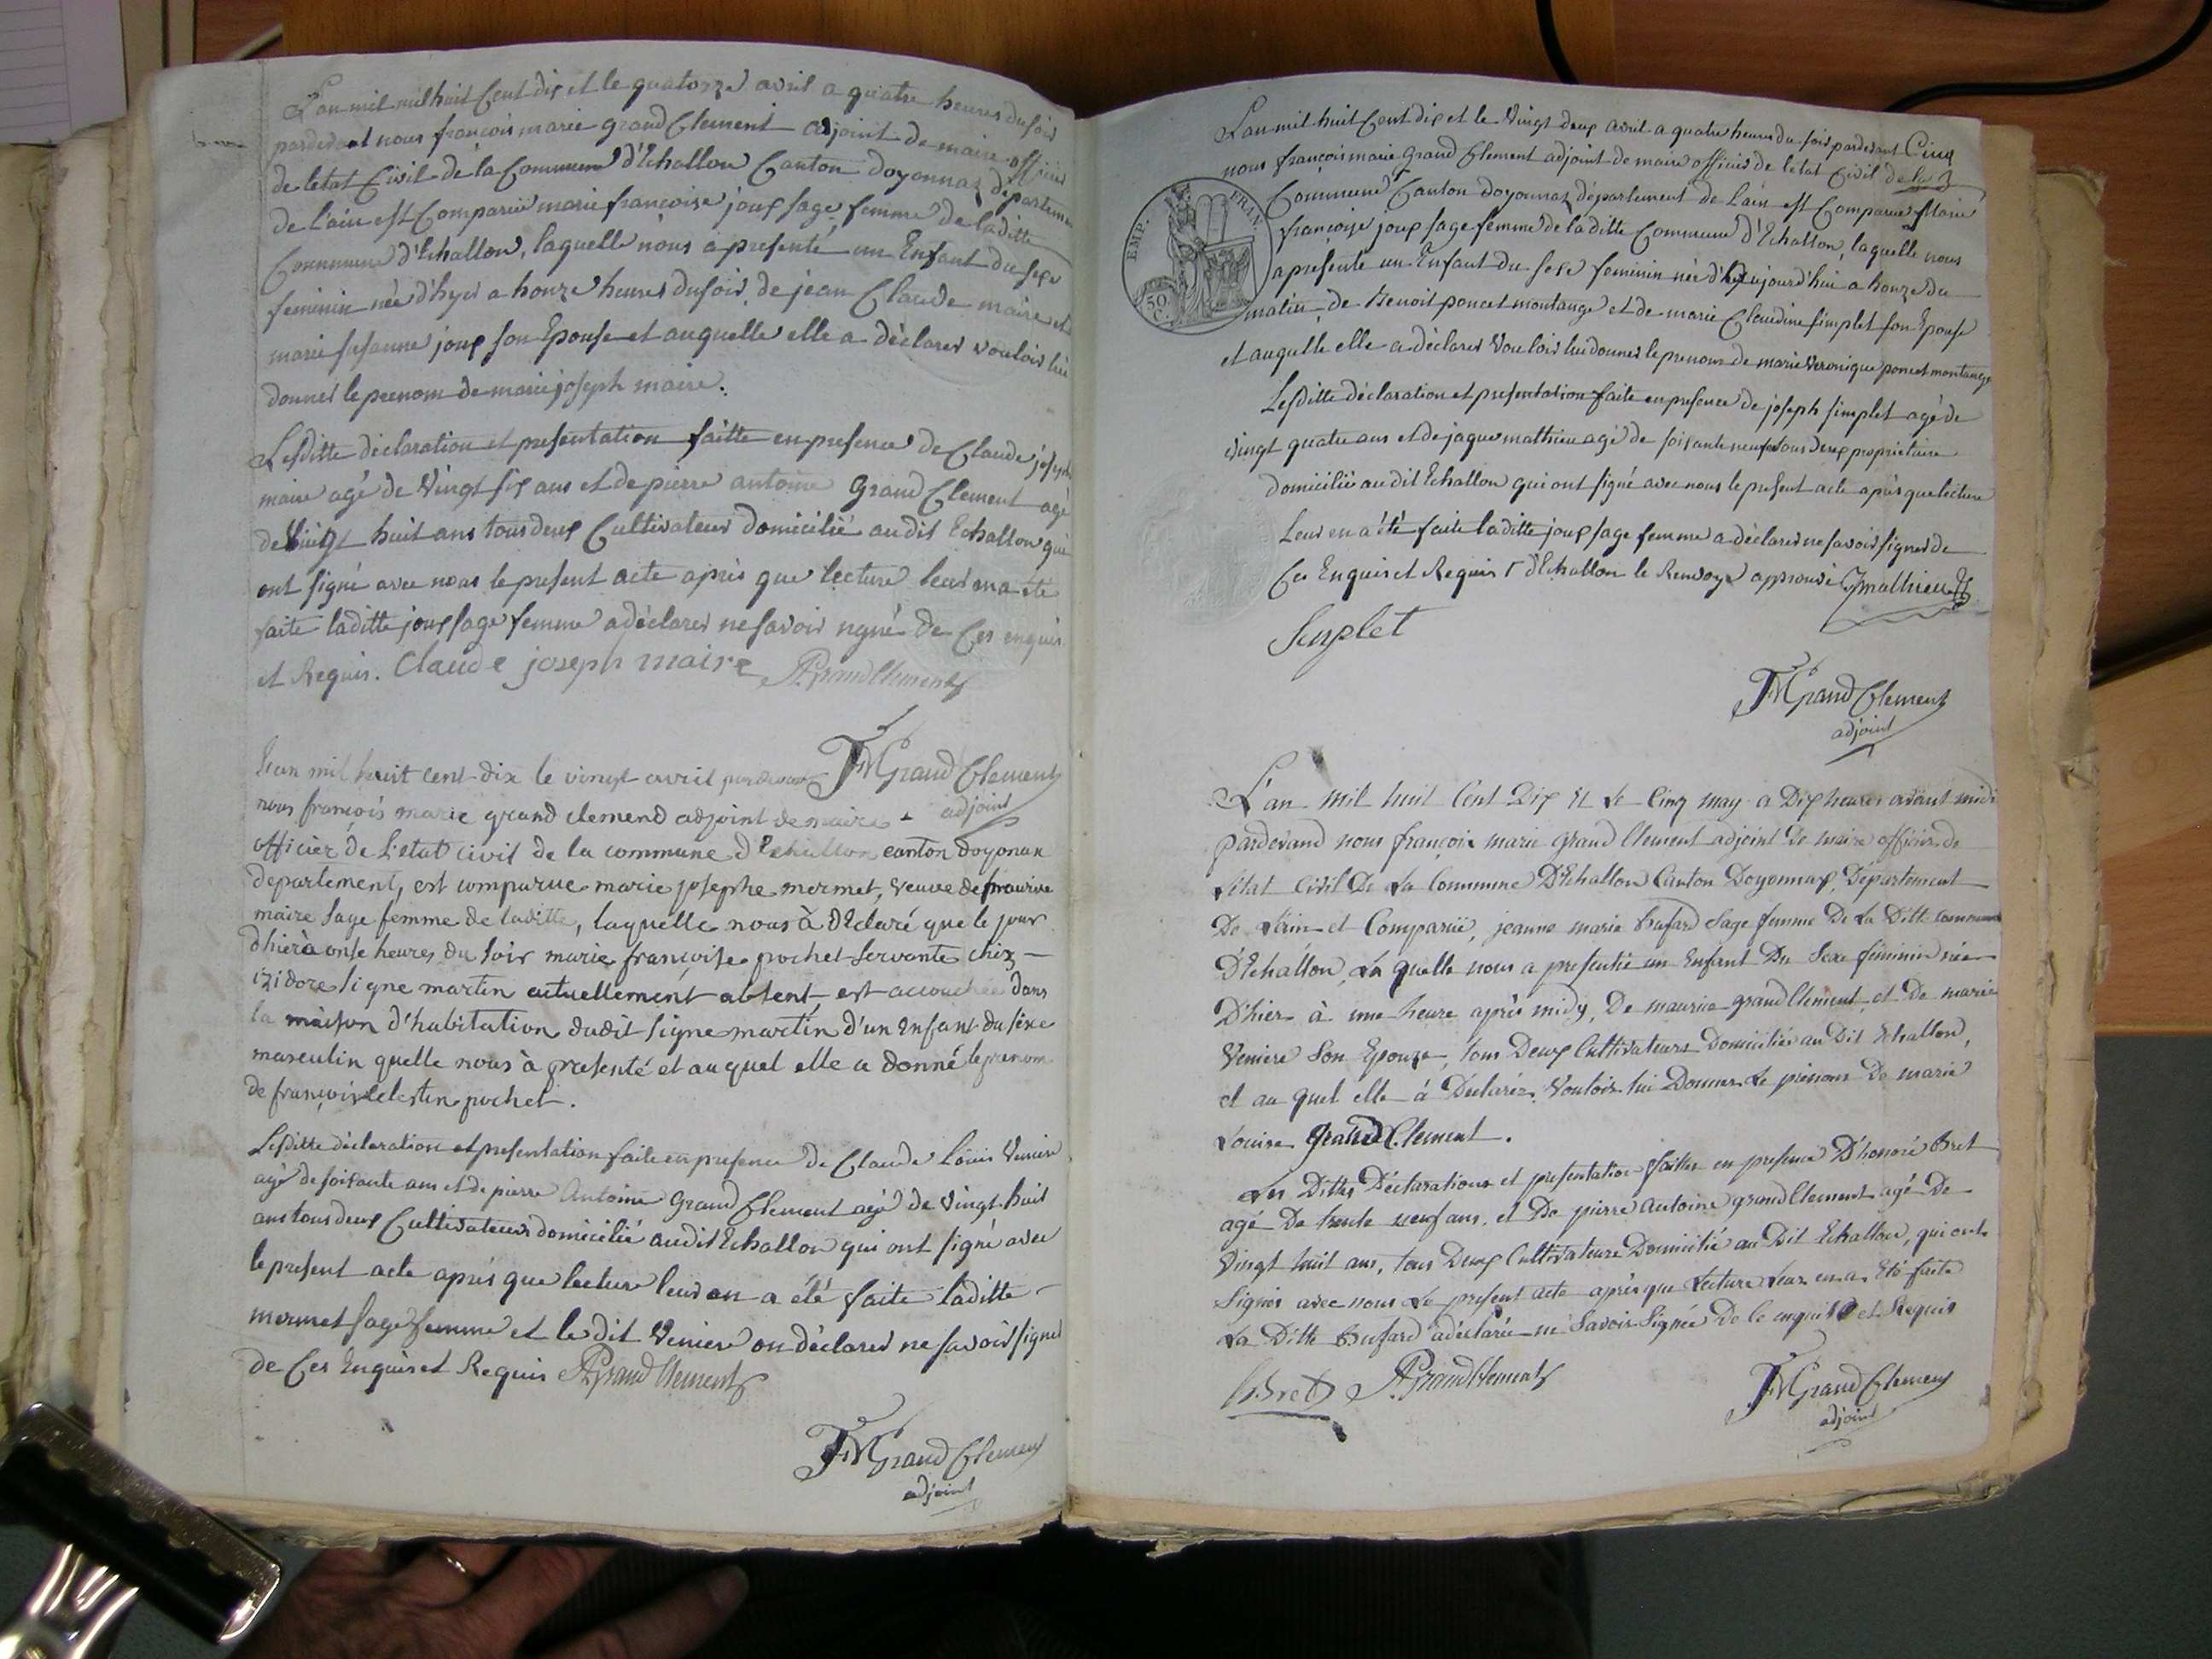 L'an mil mil huit Cent dix et le quatorze avril a quatre heures du soir
pardevant nous françois marie grand Clement adjoint de maire officier
de letat Civil de la Commune d'Echallon Canton doyonnaz departement
de l'ain est Comparüe marie francoise joux sage femme de laditte
Commune d'Echallon, laquelle nous a presenté un Enfant du sexe
feminin née d'hyer a honze heures du soir, de jean Claude maire et
marie susanne joux son Epouse et auquelle elle a déclarer vouloir lui
donner le prenom de marie joseph maire.
Lesditte déclaration et presentation faitte en presence de Claude joseph
maire agé de vingt six ans et de pierre antoine Grand Clement agé
de vingt huit ans tous deux Cultivateur domicilié audit Echallon qui
ont signé avec nous le present acte après que lecture leur en a été
faite laditte joux sage femme a déclarer ne savoir signé de Ces enquis
et Requis. Claude joseph maire PAGrandClement
L'an mil huit cent dix le vingt avril pardevant FMGrand Clement
nous françois marie grand clemend adjoint de maire adjoint
officier de l'etat civil de la commune d'Echallon canton doyonax
departement, est comparue marie josephe mermet, veuve de
maire sage femme de laditte, laquelle nous à déclaré que le jour
dhier à onse heures du soir marie françoise pochet servante chez
izidore signe martin actuellement absent est accouchée dans
la maison d'habitation dudit signe martin d'un enfant du sexe
masculin quelle nous à presenté et auquel elle a donné le prenom
de françois celestin pochet.
Lesditte déclaration et presentation faite en presence de Claude Louis Venier
agé de soixante ans et de pierre Antoine Grand Clement agé de vingt huit
ans tous deux Cultivateur domicilié audit Echallon qui ont signé avec
le present acte après que lecture leur en a été faite laditte
mermet sage femme et le dit Venier on déclarer ne savoir signer
de Ces Enquis et Requis PAGrandClement
FMGrand Clement
adjoint
L'an mil huit Cent dix et le vingt deux avril a quatre heures du soir pardevant Cinq
nous françois marie Grand Clement adjoint de maire officier de letat Civil de la
Commune Γ Canton doyonnaz département de Lain est Comparue Marie
françoise joux sage femme de laditte Commune d'Echallon, laquelle nous
a presenté un Enfant du sexe feminin née aujourd'hui a honze du
matin, de Benoit poncet montange et de marie Claudine simplet son Epouse
et auquelle elle a déclarer vouloir lui donner le prenom de marie veronique poncet montange
EMP. FRAN.
50 C.
Lesditte déclaration et presentation faite en presence de joseph simplet agé de
vingt quatre ans et de jaque mathieu agé de soixante neuf tous deux proprietaire
domicilié audit Echallon qui ont signé avec nous le present acte après que lecture
Leur en a été faite laditte joux sage femme a déclarer ne savoir signer de
Ces Enquis et Requis Γ d'Echallon le Renvoye approuvé Jmathieu
Simplet
FMGrand Clement
adjoint
L'an mil huit Cent Dix Et Le Cinq may a Dix heures avant midi
pardevand nous françois marie grand Clement adjoint De maire officier de
Létat Civil De La Commune D'Echallon Canton Doyonnax, Département
De Lain et Comparüe, jeanne marie Bufard Sage femme De La Ditte Commune
D'Echallon, La quelle nous a presentée un Enfant Du Sexe féminin née
D'hier à une heure après midy, De maurice grand Clement et De marie
Veniere Son Epouze, tous Deux Cultivateurs Domiciliés au Dit Echallon,
et au quel elle à Déclarée, Vouloir lui Donner Le prénom De marie
Louise Grand Clement.
Les Dittes Déclarations et présentation faittes en presence D'honoré Bret
agé De trente neuf ans, et De pierre Antoine grand Clement agé De
Vingt huit ans, tous Deux Cultivateurs Domicilié au Dit Echallon, qui ont
Signés avec nous Le present acte après que Lecture Leur en a Eté faite
La Ditte Bufard a déclarée ne Savoir Signée De Ce enquise et Requis
h. Bret PAGrandClement FMGrand Clement
adjoint